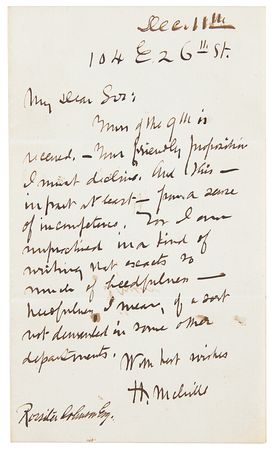 Dec. 11th
104 E 26th St.
My Dear Sir:
Yours of the 9th is
received. — Your friendly proposition
I must decline. And this —
in part at least — from a sense
of incompetence. For I am
unpracticed in a kind of
writing that exacts so
much of heedfulness —
heedfulness, I mean, of a sort
not demanded in some other
departments.
With best wishes
H. Melville
Rossiter Johnson Esq.